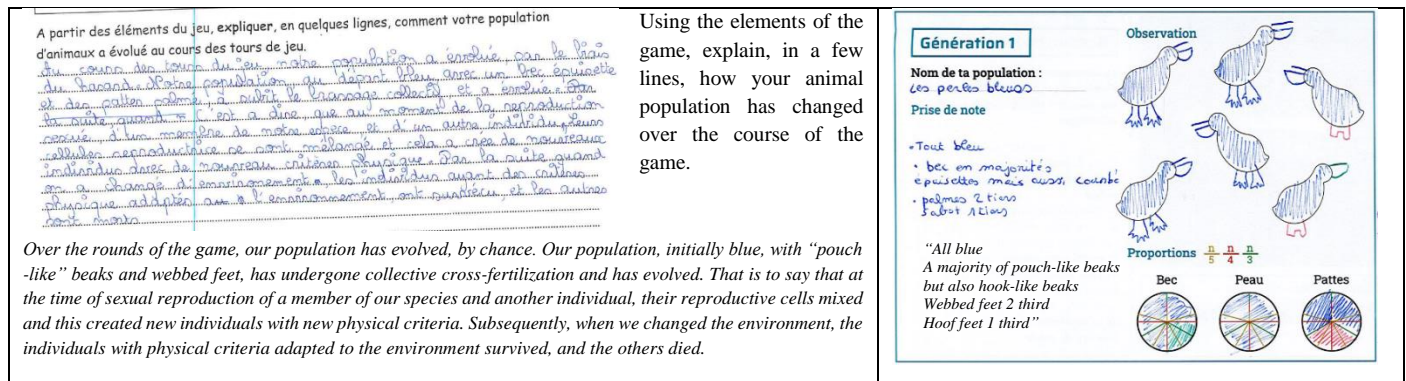 A partir des éléments du jeu, expliquer, en quelques lignes, comment votre population
d'animaux a évolué au cours des tours de jeu.
Au cours des tours du jeu, notre population a évolué, par le biais
du hasard. Notre population au départ bleu, avec un bec épuisette
et des pattes palmé, a subit le brassage collectif et a évolué. Par
la suite, quand = c'est a dire que au moment de la reproduction
sexué d'un membre de notre espèce et d'un autre individu, leurs
cellules reproductrice se sont mélangé et cela a crée de nouveaux
individus avec de nouveau critères physique. Par la suite quand
on a changé d'environnement. les individus ayant des critères
physique adaptés au à l'environnement ont survécu, et les autres
sont morts
Using the elements of the
game, explain, in a few
lines, how your animal
population has changed
over the course of the
game.
Over the rounds of the game, our population has evolved, by chance. Our population, initially blue, with “pouch
-like” beaks and webbed feet, has undergone collective cross-fertilization and has evolved. That is to say that at
the time of sexual reproduction of a member of our species and another individual, their reproductive cells mixed
and this created new individuals with new physical criteria. Subsequently, when we changed the environment, the
individuals with physical criteria adapted to the environment survived, and the others died.
Génération 1
Observation
Nom de ta population :
Les perles bleues
Prise de note
• Tout bleu
• bec en majorités
épuisettes mais aussi courbé
• palmes 2 tiers
sabot 1 tiers
“All blue
A majority of pouch-like beaks
but also hook-like beaks
Webbed feet 2 third
Hoof feet 1 third”
Proportions n/5 n/4 n/3
Bec Peau Pattes